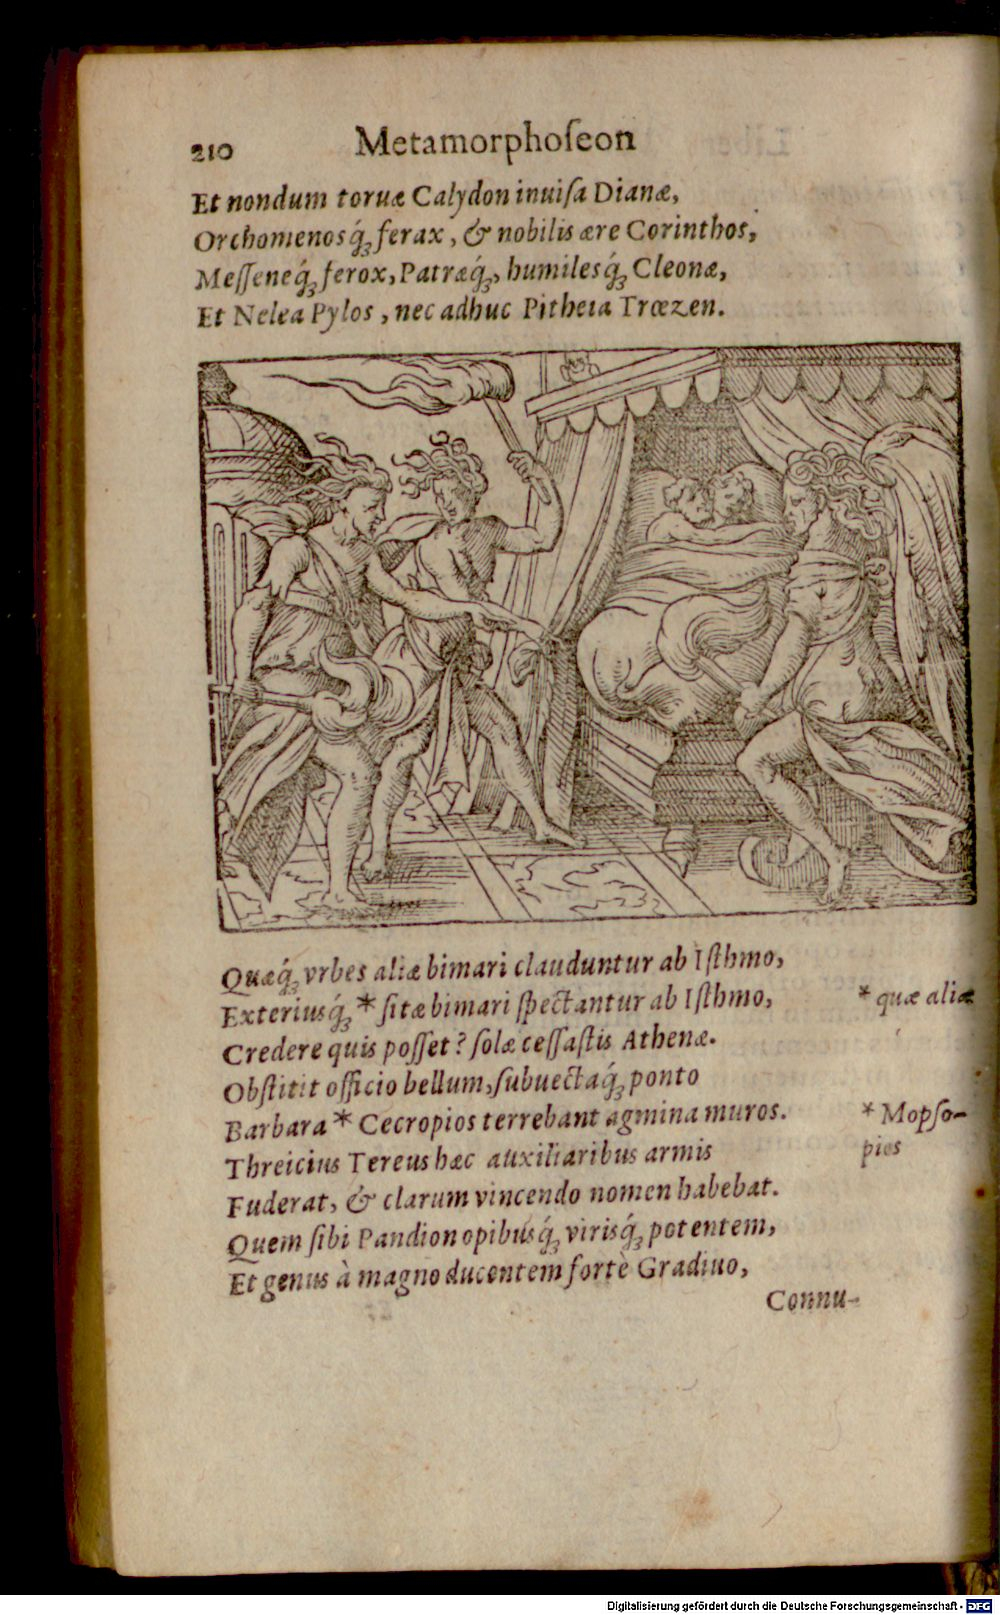 210 Metamorphoſeon
Et nondum toruæ Calydon inuiſa Dianæ,
Orchomenosq́ꝫ ferax, & nobilis ære Corinthos,
Meſſeneq́ꝫ ferox, Patræq́ꝫ, humilesq́ꝫ Cleonæ,
Et Nelea Pylos, nec adhuc Pitheia Trœzen.
Quæq́ꝫ vrbes aliæ bimari clauduntur ab Iſthmo,
Exteriusq́ꝫ * ſitæ bimari ſpectantur ab Iſthmo, * quæ aliæ
Credere quis poſſet? ſolæ ceſſaſtis Athenæ.
Obſtitit officio bellum, ſubuectaq́ꝫ ponto
Barbara * Cecropios terrebant agmina muros. * Mopſo-
pios
Threicius Tereus hæc auxiliaribus armis
Fuderat, & clarum vincendo nomen habebat.
Quem ſibi Pandion opibusq́ꝫ virisq́ꝫ potentem,
Et genus à magno ducentem fortè Gradiuo,
Connu-
Digitalisierung gefördert durch die Deutsche Forschungsgemeinschaft - DFG